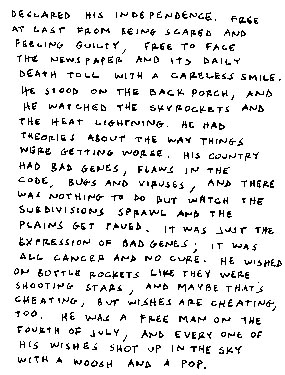 DECLARED HIS INDEPENDENCE. FREE
AT LAST FROM BEING SCARED AND
FEELING GUILTY, FREE TO FACE
THE NEWSPAPER AND ITS DAILY
DEATH TOLL WITH A CARELESS SMILE.
HE STOOD ON THE BACK PORCH, AND
HE WATCHED THE SKYROCKETS AND
THE HEAT LIGHTNING. HE HAD
THEORIES ABOUT THE WAY THINGS
WERE GETTING WORSE. HIS COUNTRY
HAD BAD GENES, FLAWS IN THE
CODE, BUGS AND VIRUSES, AND THERE
WAS NOTHING TO DO BUT WATCH THE
SUBDIVISIONS SPRAWL AND THE
PLAINS GET PAVED. IT WAS JUST THE
EXPRESSION OF BAD GENES; IT WAS
ALL CANCER AND NO CURE. HE WISHED
ON BOTTLE ROCKETS LIKE THEY WERE
SHOOTING STARS, AND MAYBE THAT'S
CHEATING, BUT WISHES ARE CHEATING,
TOO. HE WAS A FREE MAN ON THE
FOURTH OF JULY, AND EVERY ONE OF
HIS WISHES SHOT UP IN THE SKY
WITH A WOOSH AND A POP.